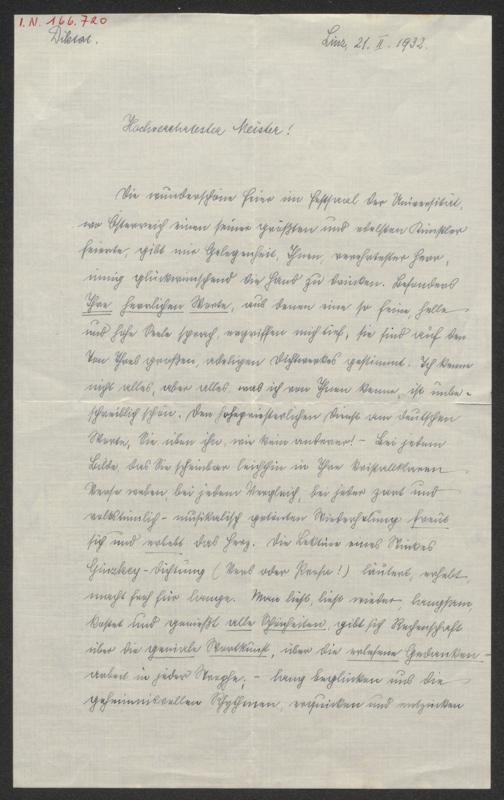 I.N. 166.720
Diktat.
Linz, 21. II. 1932.
Hochverehrtester Meister!
Die wunderschöne Feier im Festsaal der Universität,
wo Österreich einen seiner größten und edelsten Künstler
feierte, gibt mir Gelegenheit, Ihnen, verehrtester Herr,
innig glückwünschend die Hand zu drücken. Besonders
Ihre herrlichen Worte, aus denen eine so feine helle
und hohe Seele sprach, ergriffen mich tief; sie sind auf den
Ton Ihres großen, adeligen Dichtwerkes gestimmt. Ich kenne
nicht alles, aber alles, was ich von Ihnen kenne, ist unbe-
schreiblich schön. Den hohepriesterlichen Dienst am deutschen
Worte, Sie üben ihn, wie kein anderer! – Bei jedem
Bilde, das Sie scheinbar leichthin in Ihre kristallklaren
Verse weben, bei jedem Vergleich, bei jeder zart und
volkstümlich-musikalisch getönten Wiederholung freut
sich und erlebt das Herz. Die Lektüre eines Stückes
Ginzkey-Dichtung (Vers oder Prosa!) läutert, erhebt,
macht hoch für lange. Man liest, liest wieder, langsam,
kostet und genießt alle Schönheiten, gibt sich Rechenschaft
über die geniale Wortkunst, über die erlesene Gedanken-
arbeit in jeder Strophe; – lang beglücken uns die
geheimnisvollen Rhythmen, erquicken und entzücken